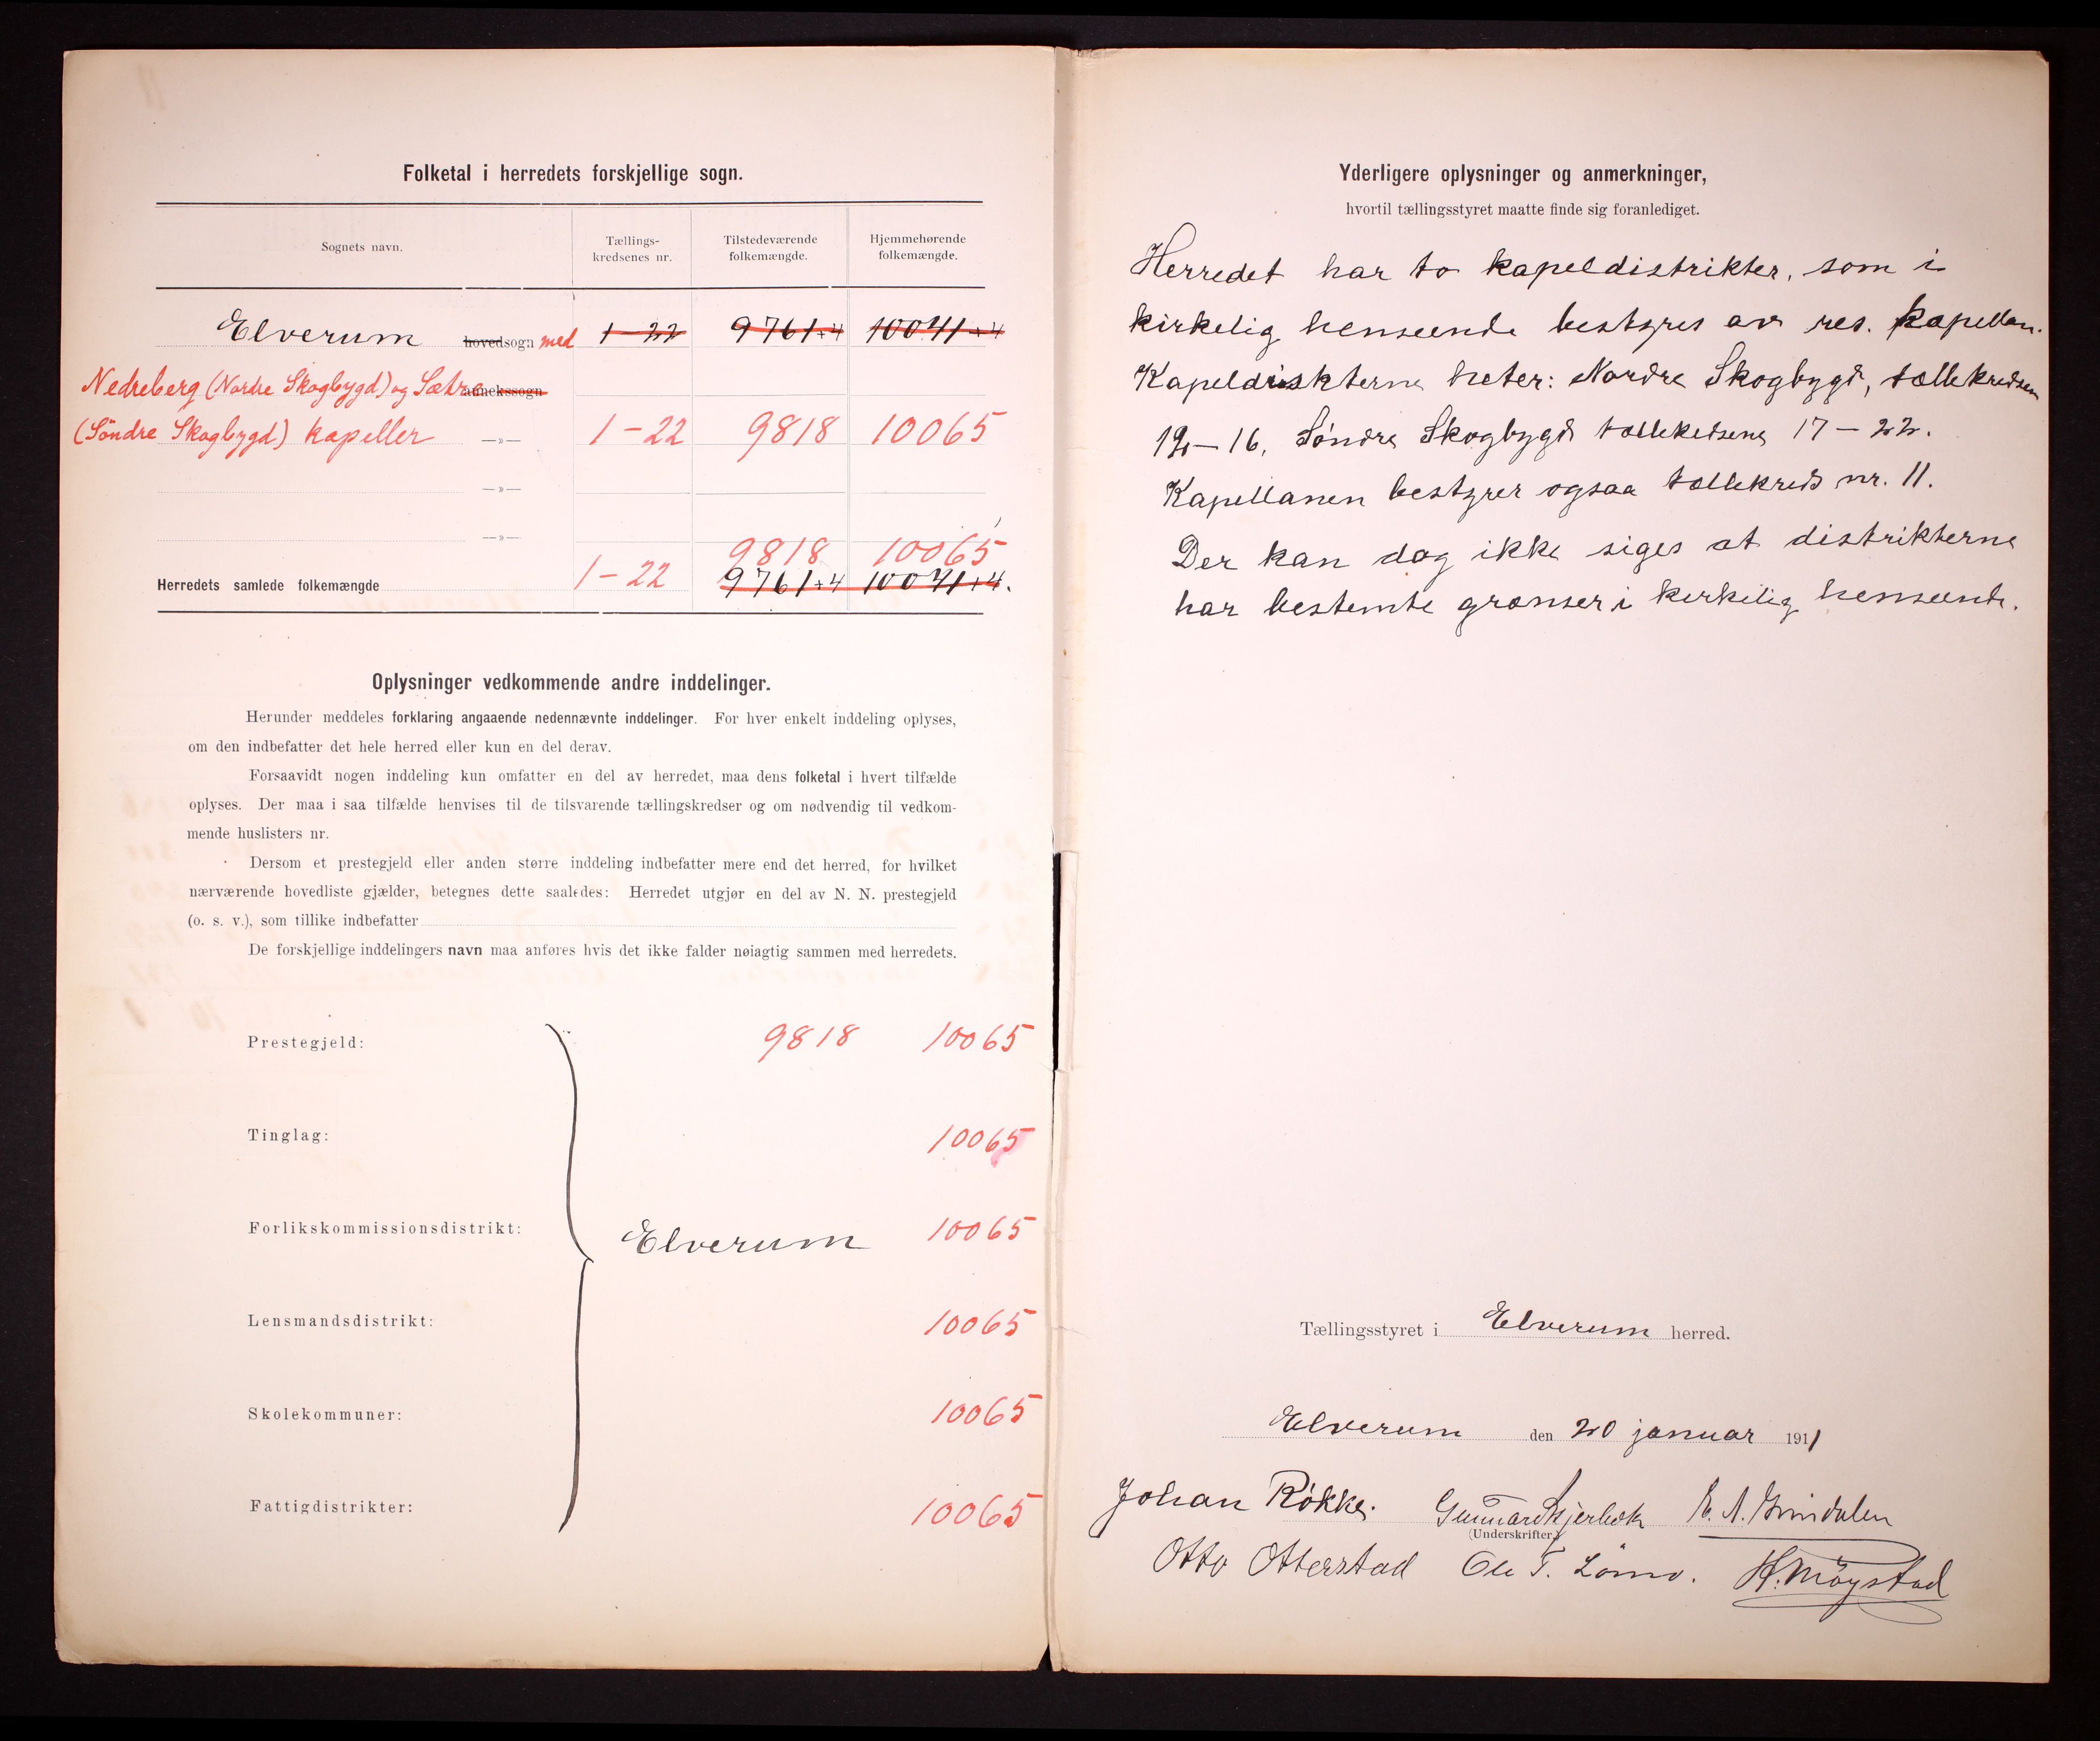 Folketal i herredets forskjellige sogn.
Sognets navn. Tællings-kredsenes nr. Tilstedeværende folkemængde. Hjemmehørende folkemængde.
Elverum hovedsogn med 1-22 9761+4 10041+4
Nedreberg (Nordre Skogbygd) og Sætre annekssogn
(Söndre Skogbygd) kapeller —»— 1-22 9818 10065
—»—
—»—
9818 10065
Herredets samlede folkemængde 1-22 9761+4 10041+4.
Oplysninger vedkommende andre inddelinger.
Herunder meddeles forklaring angaaende nedennævnte inddelinger. For hver enkelt inddeling oplyses,
om den indbefatter det hele herred eller kun en del derav.
Forsaavidt nogen inddeling kun omfatter en del av herredet, maa dens folketal i hvert tilfælde
oplyses. Der maa i saa tilfælde henvises til de tilsvarende tællingskredser og om nødvendig til vedkom-
mende huslisters nr.
Dersom et prestegjeld eller anden større inddeling indbefatter mere end det herred, for hvilket
nærværende hovedliste gjælder, betegnes dette saaledes: Herredet utgjør en del av N. N. prestegjeld
(o. s. v.), som tillike indbefatter
De forskjellige inddelingers navn maa anføres hvis det ikke falder nøiagtig sammen med herredets.
Prestegjeld: 9818 10065
Tinglag: 10065
Forlikskommissionsdistrikt: Elverum 10065
Lensmandsdistrikt: 10065
Skolekommuner: 10065
Fattigdistrikter: 10065
Yderligere oplysninger og anmerkninger,
hvortil tællingsstyret maatte finde sig foranlediget.
Herredet har to kapeldistrikter, som i
kirkelig henseende bestyres av res. kapellan.
Kapeldriskterne heter: Nordre Skogbygd, tællekredsene
12-16, Söndre Skogbygd tællekedsene 17-22.
Kapellanen bestyrer ogsaa tællekreds nr. 11.
Der kan dog ikke siges at distrikterne
har bestemte grænser i kirkelig henseende.
Tællingsstyret i Elverum herred.
Elverum den 20 januar 1911
Johan Røkke. Gunnar
(Underskrifter.)
Otto Otterstad Ole T. Lömo. H. Møystad